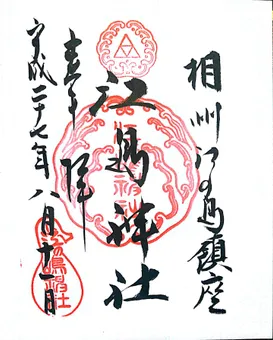 相州江の島鎮座
江島神社
奉拝
平成二十七年八月十一日